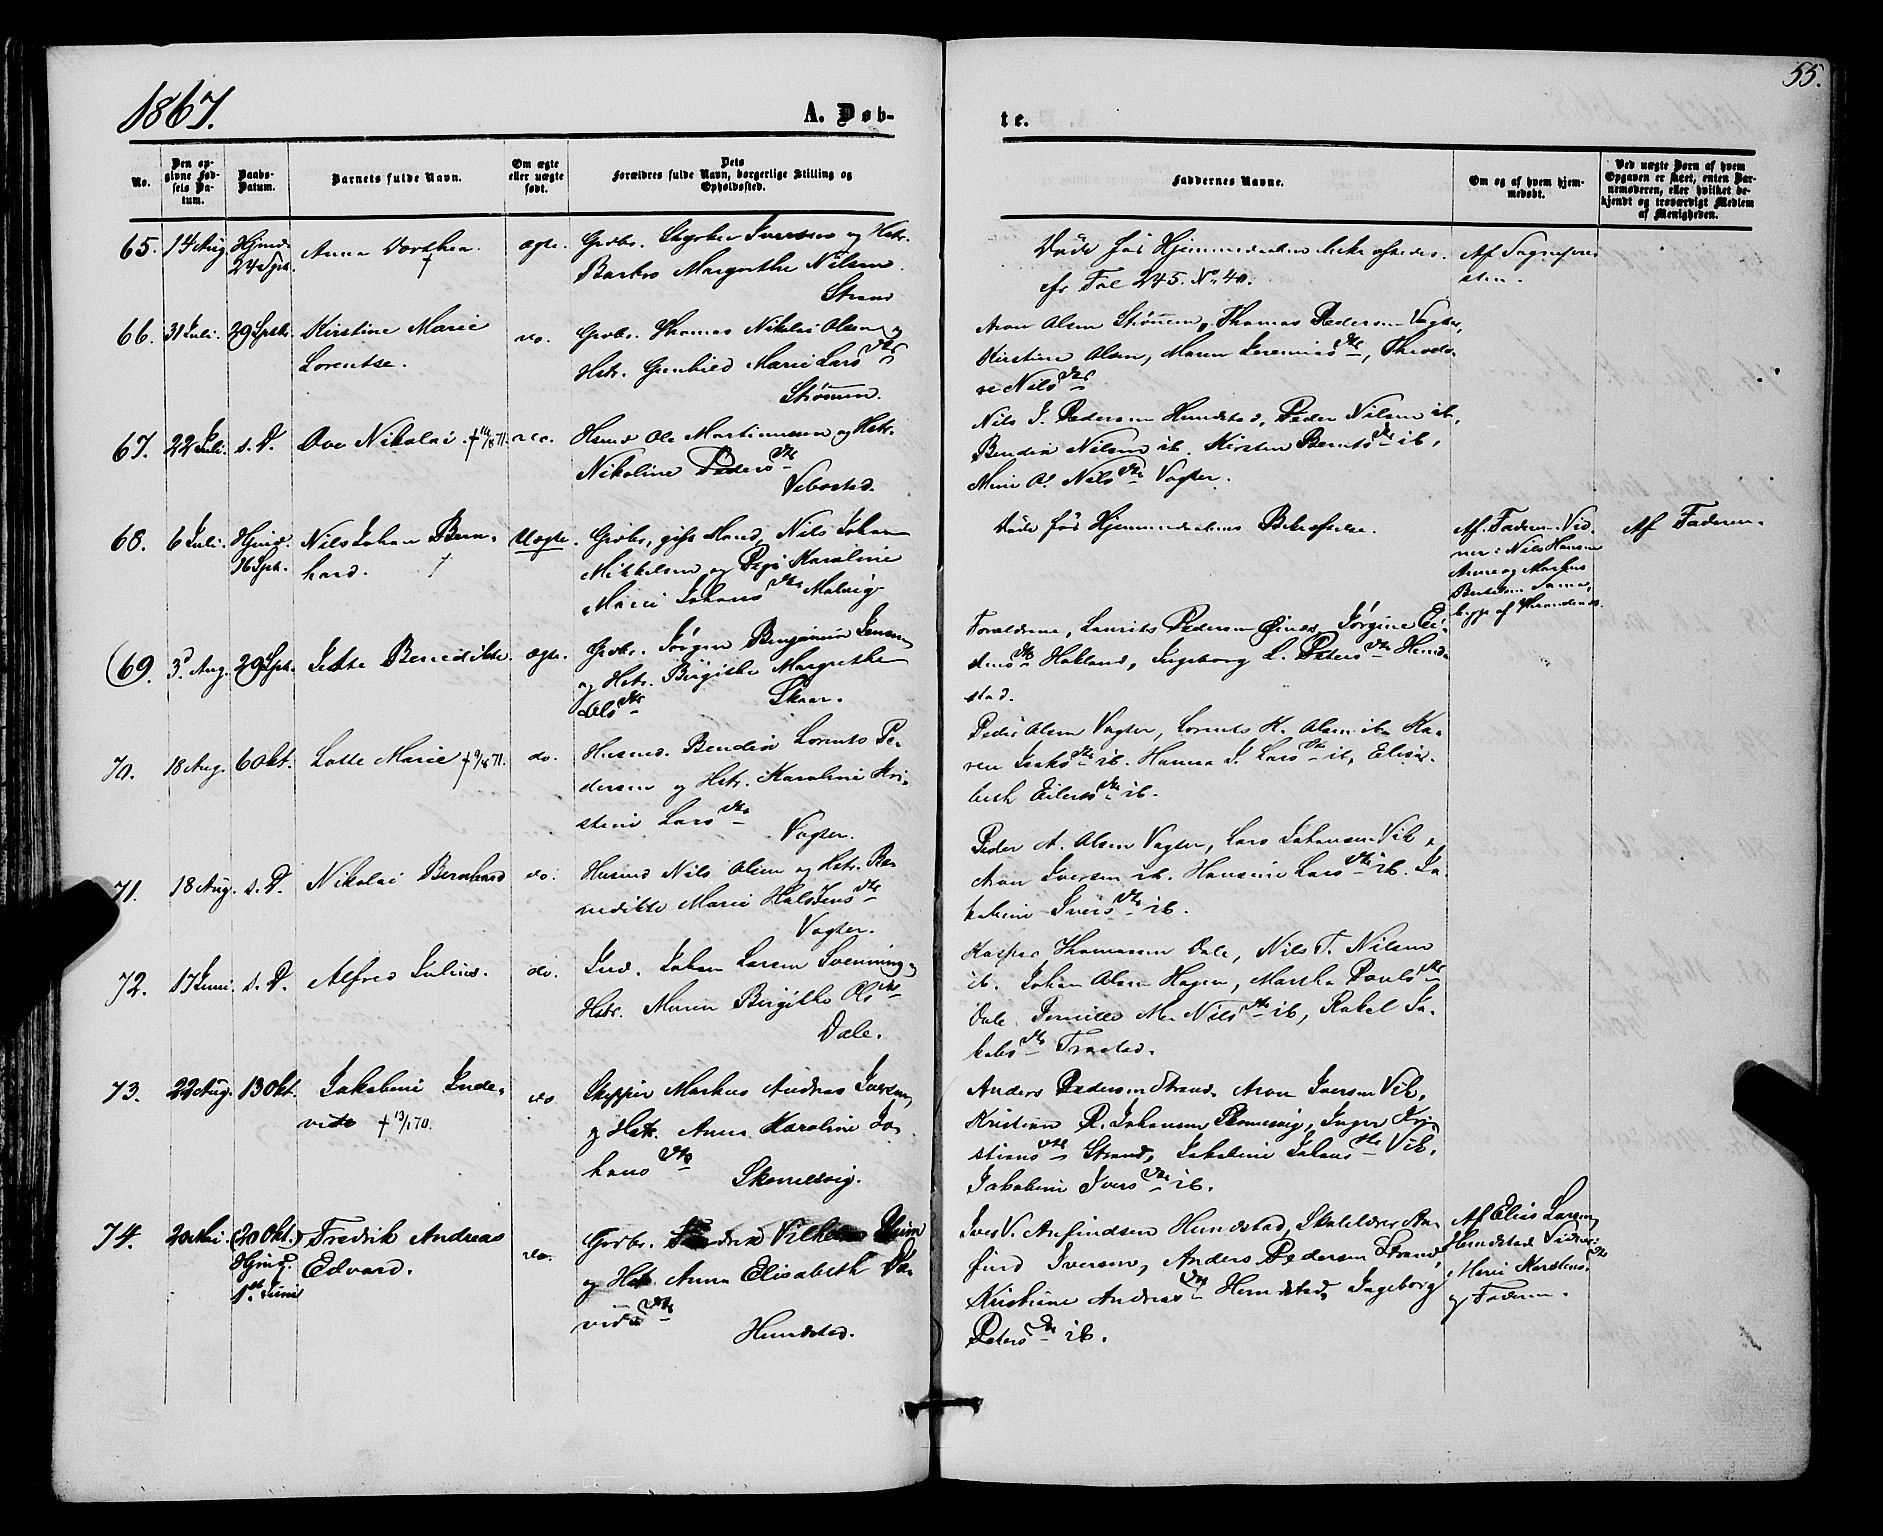 55.
1867.
A. Døb-
te.
No.
Den op-
givne Fød-
sels Da-
tum.
Daabs-
Datum.
Barnets fulde Navn.
Om ægte
eller uægte
født.
Dets
Forældres fulde Navn, borgerlige Stilling og
Opholdssted.
Faddernes Navne.
Om og af hvem hjem-
medøbt.
Ved uægte Barn af hvem
Opgaven er skeet, enten Bar-
nemoderen, eller hvilket be-
kjendt og troværdigt Medlem
af Menigheden.
65. 14 Aug. Hjmd. Anna Dorthea. ægte. Grdbr. Iversen og Hstr.
24 Spt. †
Margrethe Nilsen
Strand
Døde før Hjemmedaaben
cfr Fol 245. No. 40.
Af
66. 31 Juli. 29 Sptb. Kirstine Marie do. Grdbr. Thomas Nikolai Olsen og
Lorentse.
Hstr. Gunhild Marie Larsdtr
Strømmen.
Aron Olsen Strømmen, Thomas Pedersen Vagter,
Kirstine Olsen, Maren Jeremiasdtr,
Nilsdtr
67. 22 Juli. s. D. Ove Nikolai. † 71. Hsmd Ole Martinussen og Hstr.
Nikoline Pedersdtr
Vebostad.
Nils J. Pedersen Hemdstad, Peder Nilsen ib.,
Bendix Nilsen ib. Kirsten Berntsdtr ib.
Nilsdtr Vagter.
68. 6 Juli. Hjmd. Nils Johan Bern- Uægte. Grdbr., gift Mand, Nils Johan
16 Spt. hard. †
Mikkelsen og Pige Karoline
Marie Johansdtr Malvig
Døde før Hjemmedaabens Bekræftelse.
Af Faderen. Vid-
ner: Nils Hansen
og Markus
Af Faderen.
(69. 3 Aug. 29 Spt. Jette Benedikte. ægte. Grdbr. Jørgen Benjamin Jensen
og Hstr. Birgithe Margrethe
Olsdtr Skaar.
Forældrene, Laurits Pedersen Øinæs, Jørgine
Hokland, Ingeborg L. Petersdtr Hemd-
stad.
70. 18 Aug. 6 Okt. Lotte Marie † 9/8 71. do. Husmd. Bendix Lorents Pe-
dersen og Hstr. Karoline Kri-
stine Larsdtr
Vagter.
Peder Olsen Vagter, Lorents H. Olsen ib. Ka-
ren Isaksdtr ib. Hanna J. Larsdtr ib, Elisa-
beth Eilertsdtr ib.
71. 18 Aug. s. D. Nikolai Bernhard do. Husmd Nils Olsen og Hstr. Be-
nedikte Marie
Vagter.
Peder A. Olsen Vagter, Lars Johansen Vik,
Aron Iversen ib. Hansine Larsdtr ib. Ja-
kobine Iversdtr ib.
72. 17 Juni. s. D. Alfred Julius. do. Ind. Johan Larsen Svenning og
Hstr. Maren Birgithe Olsdtr
Dale.
Kasper Thomassen Dale, Nils T. Nilsen
ib. Johan Olsen Hagen, Martha Paulsdtr
Dale. Pernille M. Nilsdtr ib, Rakel Ja-
kobsdtr Trastad.
73. 22 Aug. 13 Okt. Jakobine Inde- do
vida † 13/1 70.
Skipper Markus Andreas Iversen
og Hstr. Anna Karoline Jo-
hansdtr
Skonsdvig.
Anders Pedersen Strand. Aron Iversen Vik,
Kristian R. Johansen Inger Kri-
stiansdtr Strand, Jakobine Johansdtr Vik,
Jakobine Iversdtr ib.
74. 20 Mai. (20 Okt.) Fredrik Andreas do.
Hjmd. Edvard.
1st Juni
Grdbr. Fredrik Vilhelm
og Hstr Anna Elisabeth Da-
vidsdtr
Hemdstad.
Iver V. Anfindsen Hemdstad, Skolelærer An-
find Iversen, Anders Pedersen Strand,
Kristine Andreasdtr Hemdstad, Ingeborg
Petersdtr ib.
Af Elias Larsen,
Hemdstad. Vidner:
Marie Karstensdtr
og Faderen.